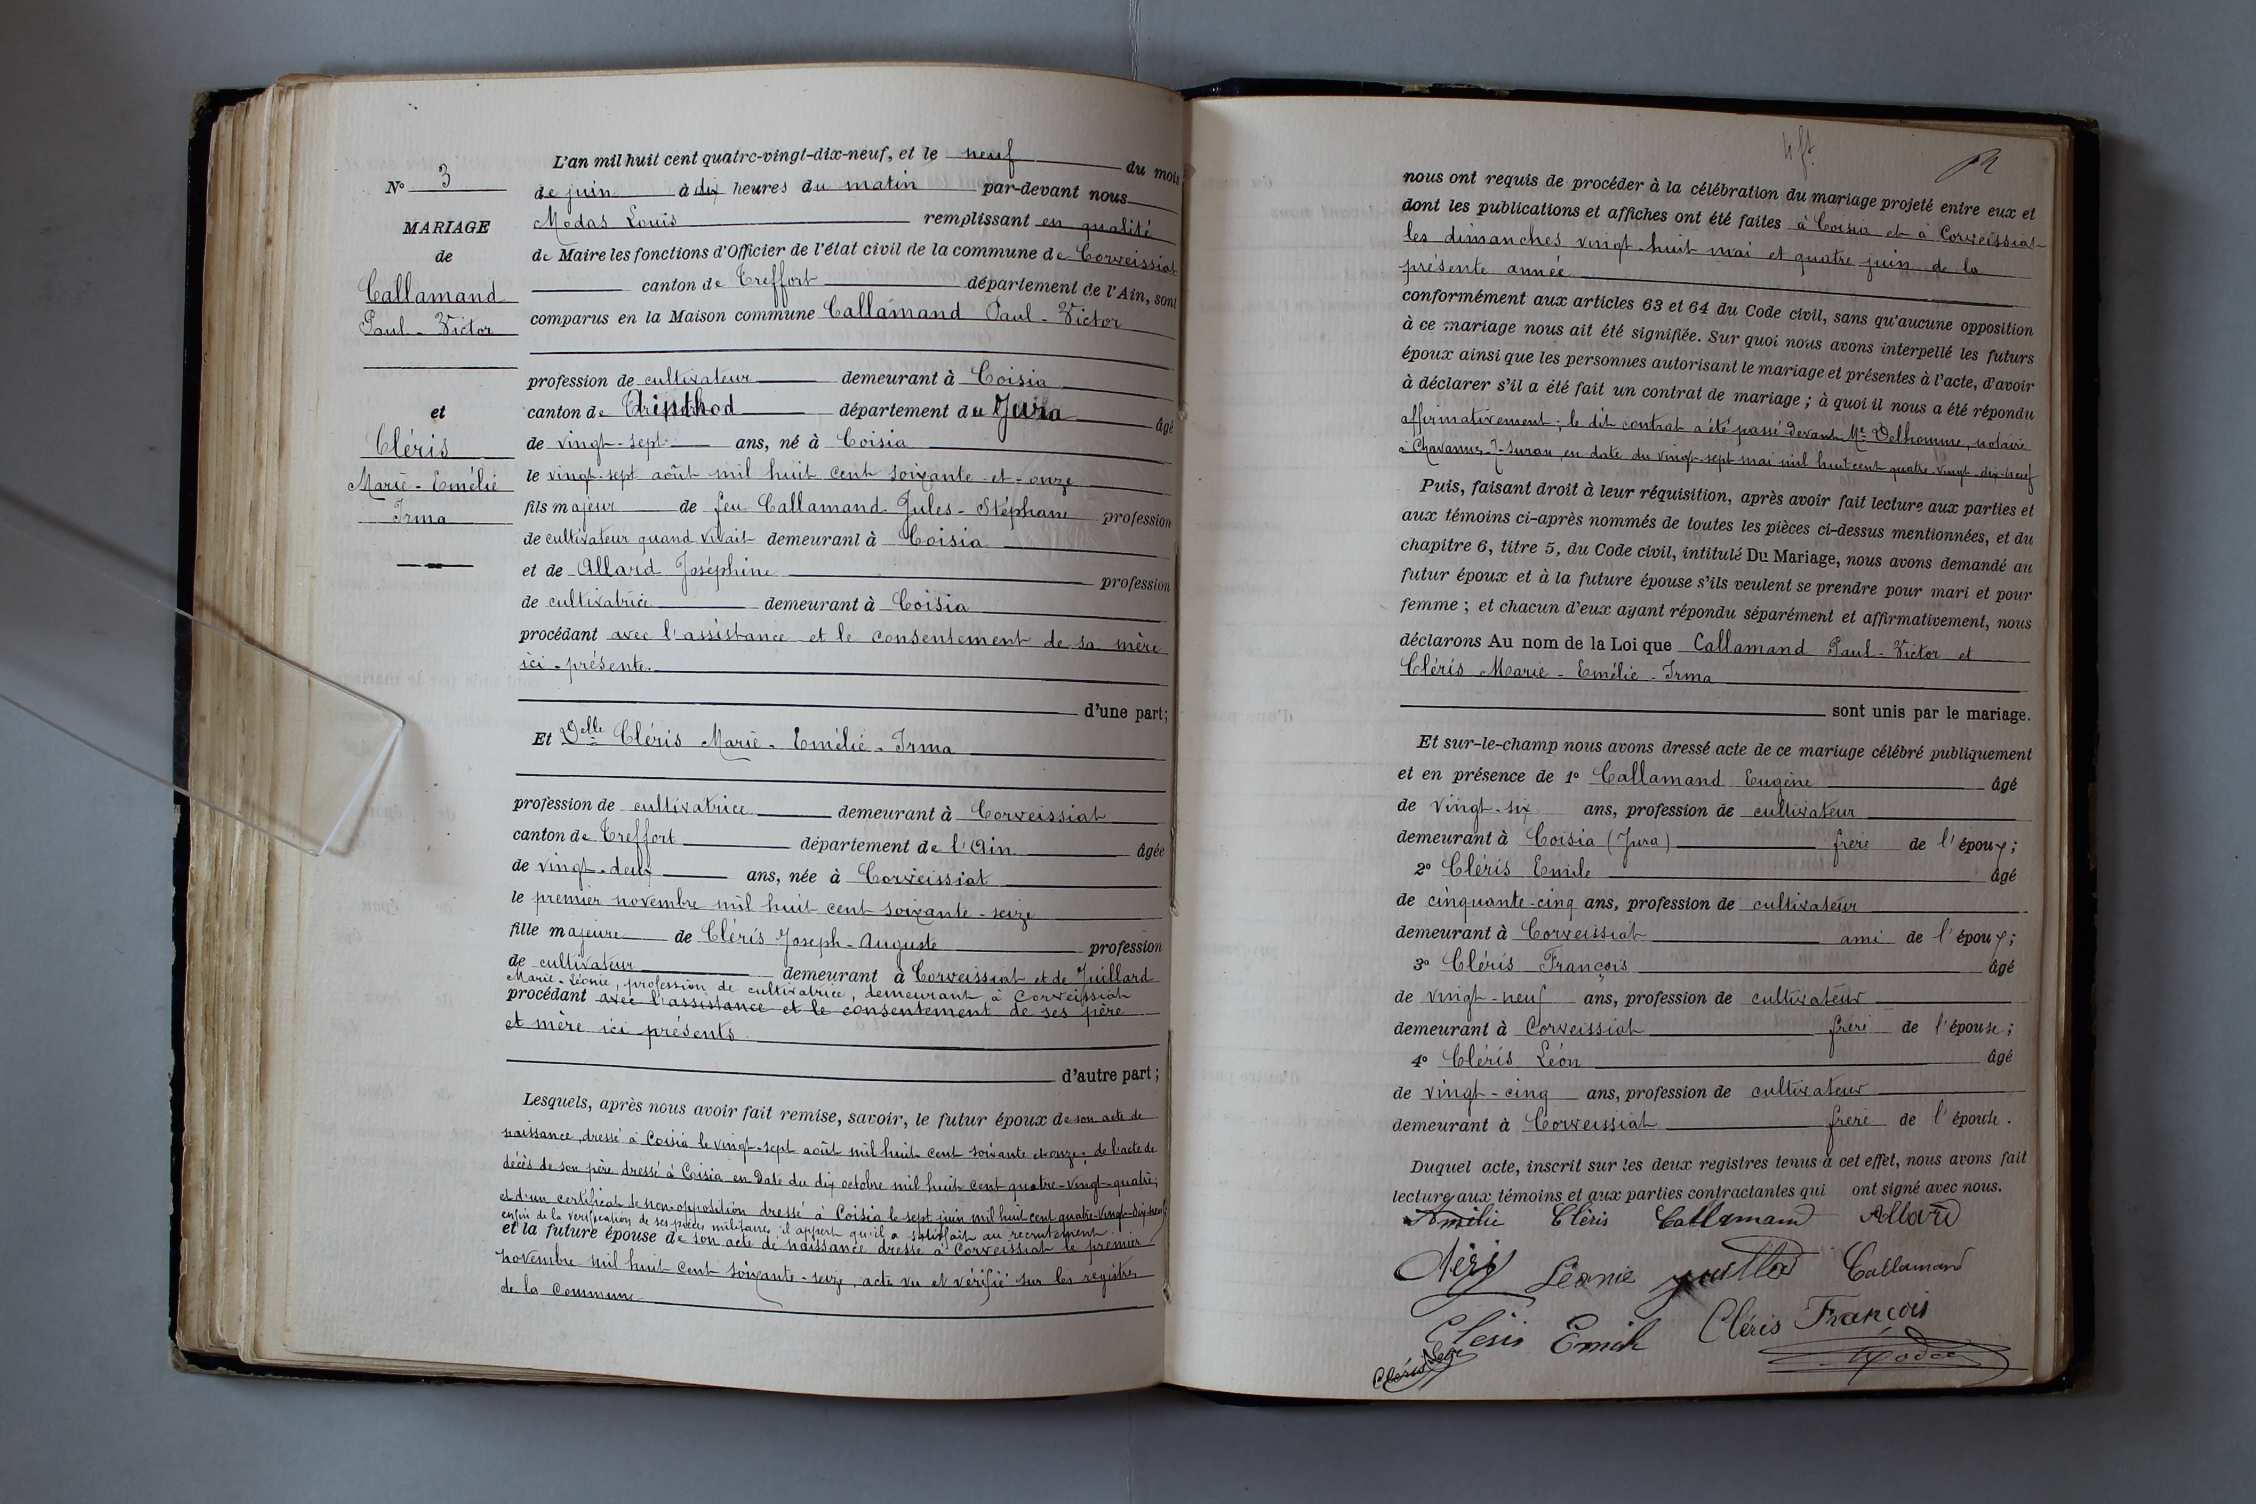 N° 3
MARIAGE
de
Callamand
Paul - Victor
et
Cléris
Marie - Emélie
Irma
L'an mil huit cent quatre-vingt-dix-neuf, et le neuf du mois
de juin à dix heures du matin par-devant nous
Modas Louis remplissant en qualité
de Maire les fonctions d'Officier de l'état civil de la commune de Corveissiat
canton de Treffort département de l'Ain, sont
comparus en la Maison commune Callamand Paul - Victor
profession de cultivateur demeurant à Coisia
canton de département du Jura âgé
de vingt-sept ans, né à Coisia
le vingt-sept août mil huit cent soixante-et-onze
fils majeur de feu Callamand Jules - Stéphane profession
de cultivateur quand vivait demeurant à Coisia
et de Allard Joséphine profession
de cultivatrice demeurant à Coisia
procédant avec l'assistance et le consentement de sa mère
ici-présente.
d'une part;
Et Delle Cléris Marie - Emélie - Irma
profession de cultivatrice demeurant à Corveissiat
canton de Treffort département de l'Ain âgée
de vingt-deux ans, née à Corveissiat
le premier novembre mil huit cent soixante-seize
fille majeure de Cléris Joseph - Auguste profession
de cultivateur demeurant à Corveissiat et de Juillard
Marie-Léonie, profession de cultivatrice, demeurant à Corveissiat
procédant avec l'assistance et le consentement de ses père
et mère ici présents
d'autre part;
Lesquels, après nous avoir fait remise, savoir, le futur époux de son acte de
naissance, dressé à Coisia le vingt-sept août mil huit cent soixante et onze; de l'acte de
décès de son père dressé à Coisia en date du dix octobre mil huit cent quatre-vingt-quatre;
et d'un certificat de non-opposition dressé à Coisia le sept juin mil huit cent quatre-vingt-dix-neuf;
enfin de la vérification de ses pièces militaires il appert qu'il a satisfait au recrutement.
et la future épouse de son acte de naissance dressé à Corveissiat le premier
novembre mil huit cent soixante-seize, acte vu et vérifié sur les registres
de la commune
nous ont requis de procéder à la célébration du mariage projeté entre eux et
dont les publications et affiches ont été faites à Coisia et à Corveissiat
les dimanches vingt-huit mai et quatre juin de la
présente année
conformément aux articles 63 et 64 du Code civil, sans qu'aucune opposition
à ce mariage nous ait été signifiée. Sur quoi nous avons interpellé les futurs
époux ainsi que les personnes autorisant le mariage et présentes à l'acte, d'avoir
à déclarer s'il a été fait un contrat de mariage; à quoi il nous a été répondu
affirmativement; le dit contrat a été passé devant Me Delhomme, notaire
à Chavannes-s-Suran, en date du vingt-sept mai mil huit cent quatre-vingt-dix-neuf
Puis, faisant droit à leur réquisition, après avoir fait lecture aux parties et
aux témoins ci-après nommés de toutes les pièces ci-dessus mentionnées, et du
chapitre 6, titre 5, du Code civil, intitulé Du Mariage, nous avons demandé au
futur époux et à la future épouse s'ils veulent se prendre pour mari et pour
femme; et chacun d'eux ayant répondu séparément et affirmativement, nous
déclarons Au nom de la Loi que Callamand Paul - Victor et
Cléris Marie - Emélie - Irma
sont unis par le mariage.
Et sur-le-champ nous avons dressé acte de ce mariage célébré publiquement
et en présence de 1° Callamand Eugène âgé
de vingt-six ans, profession de cultivateur
demeurant à Coisia (Jura) frère de l'époux;
2° Cléris Emile âgé
de cinquante-cinq ans, profession de cultivateur
demeurant à Corveissiat ami de l'époux;
3° Cléris François âgé
de vingt-neuf ans, profession de cultivateur
demeurant à Corveissiat frère de l'épouse;
4° Cléris Léon âgé
de vingt-cinq ans, profession de cultivateur
demeurant à Corveissiat frère de l'épouse.
Duquel acte, inscrit sur les deux registres tenus à cet effet, nous avons fait
lecture aux témoins et aux parties contractantes qui ont signé avec nous.
Amélie Cléris Callamand Allard
Léonie Juillard Callamand
Emile Cléris François
Cléris